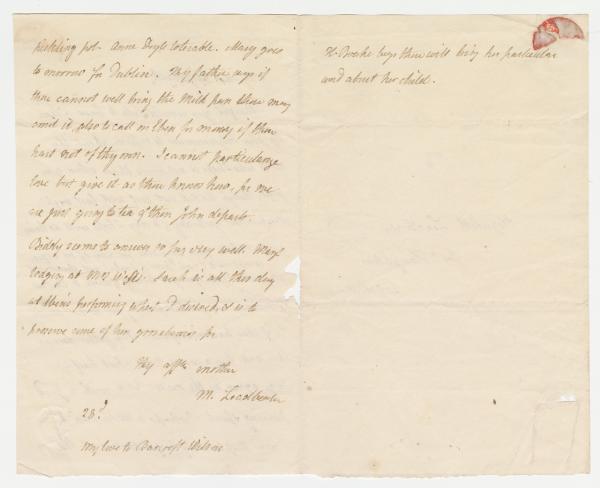 pickling pot. Anne Doyle tolerable. Mary goes
to morrow for Dublin. Thy father says if
thou cannot well bring the Milk pan thou may
omit it, also to call on Eben for money if thou
hast not of thy own. I cannot particularize
love but give it as thou knows how, for we
are just going to tea & then John departs.
Biddy seems to answer so far very well. Mary
lodging at Mrs Sarah is all this day
at Eben's performing what I desired, & is to
preserve some of her gooseberries for
Thy affte mother
M. Leadbeater
28th
My love to Bancroft Wilson
says thou will bring her particular
and about her child.